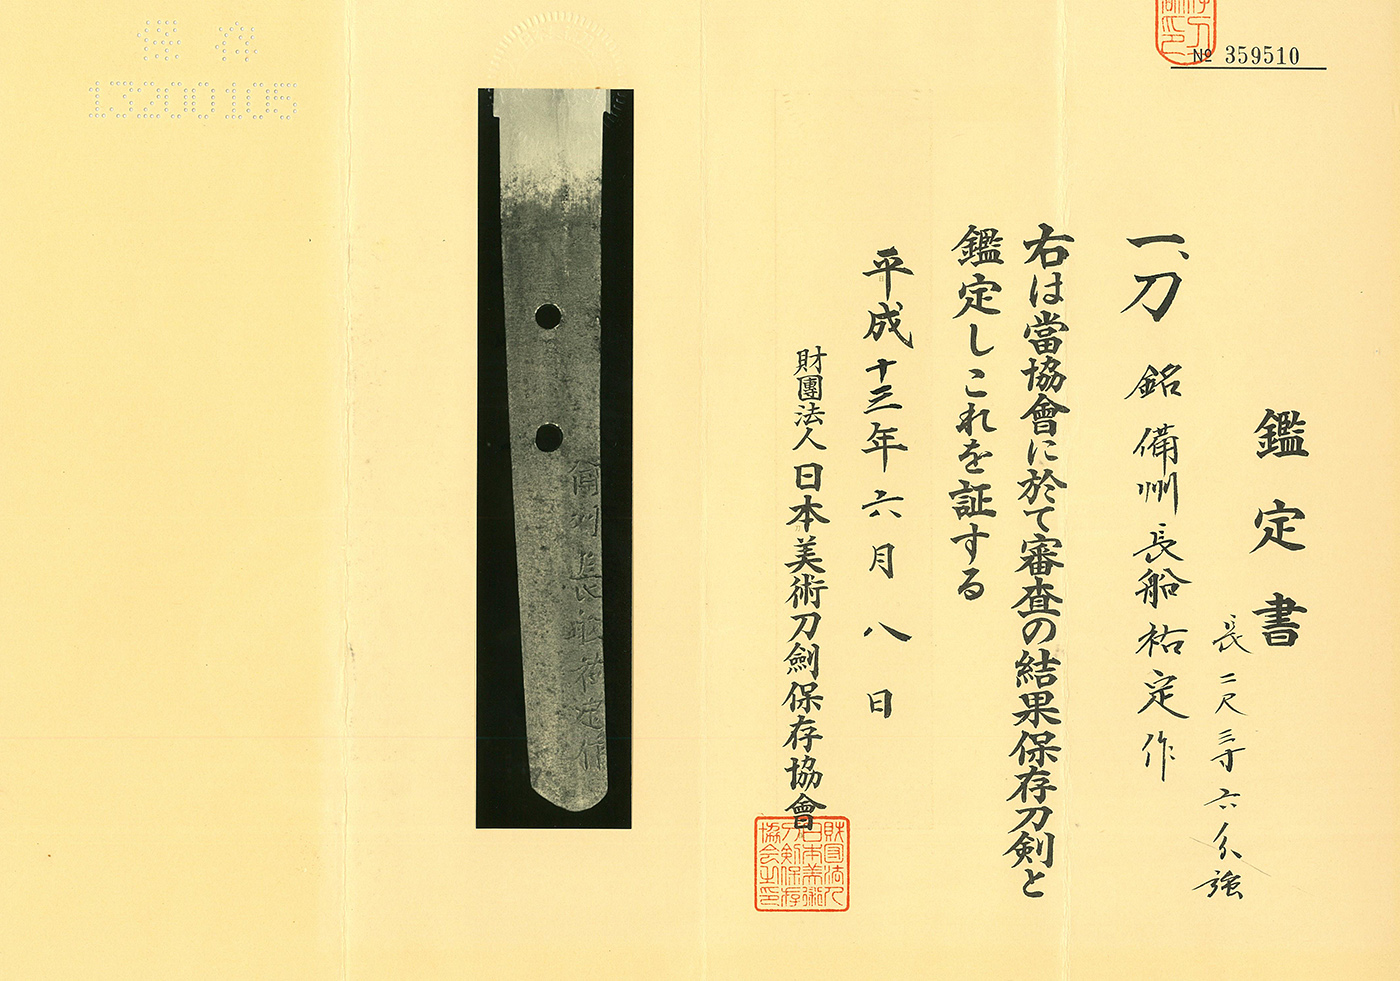 № 359510
鑑定書
長二尺三寸六分強
一、刀 銘 備州長船祐定作
右は當協會に於て審査の結果保存刀剣と
鑑定しこれを証する
平成十三年六月八日
財團法人 日本美術刀劍保存協會
財団法人
日本美術
刀剣保存
協会之印
備州長船祐定作
保存
13200105